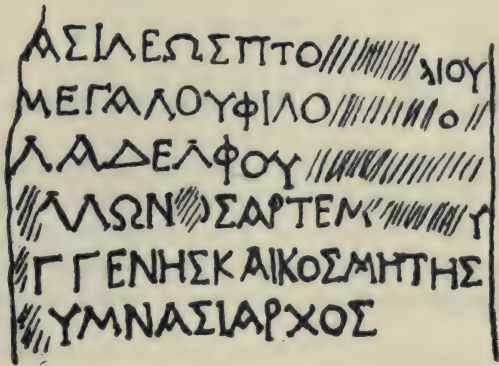 ΑΣΙΛΕΩΣΠΤΟ ΛΙΟΥ
ΜΕΓΑΛΟΥΦΙΛΟ Ο
ΛΑΔΕΛΦΟΥ
ΛΛΩΝ ΣΑΡΤΕΜ Υ
ΓΓΕΝΗΣΚΑΙΚΟΣΜΗΤΗΣ
ΥΜΝΑΣΙΑΡΧΟΣ